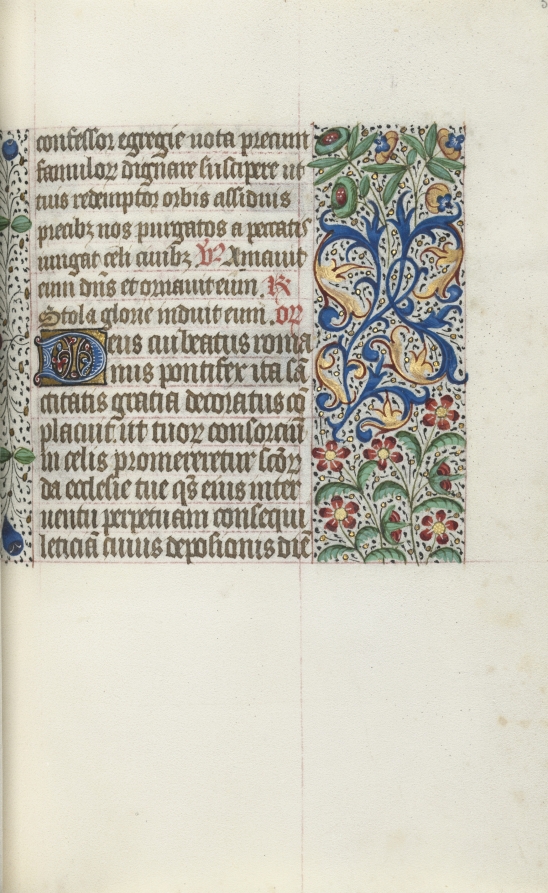 confessor egregie uota precum
famuloꝝ dignare suscipere ut
tuis redemptor orbis assiduis
precibꝫ nos purgatos a peccatis
iungat celi ciuibꝫ ℣ Amauit
eum dn̄s et ornauit eum ℟
Stola glorie induit eum or̄
Deus cui beatus roma
nus pontifex ita sā
ctitatis gratia decoratus
placuit ut tuoꝝ
in celis promereretur scōꝝ
da ecclesie tue qs̄ eius inter
uentu perpetuam consequi
leticiā cuius deposionis diē